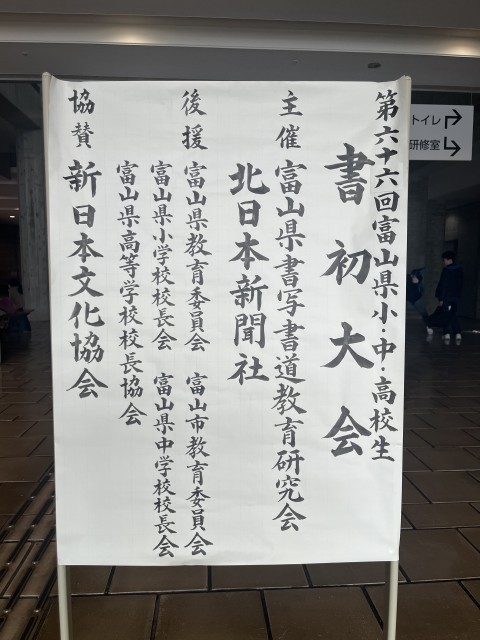 第六十六回富山県小・中・高校生
書初大会
主催 富山県書写書道教育研究会
北日本新聞社
後援 富山県教育委員会 富山市教育委員会
富山県小学校校長会 富山県中学校校長会
富山県高等学校校長協会
協賛 新日本文化協会
トイレ
研修室